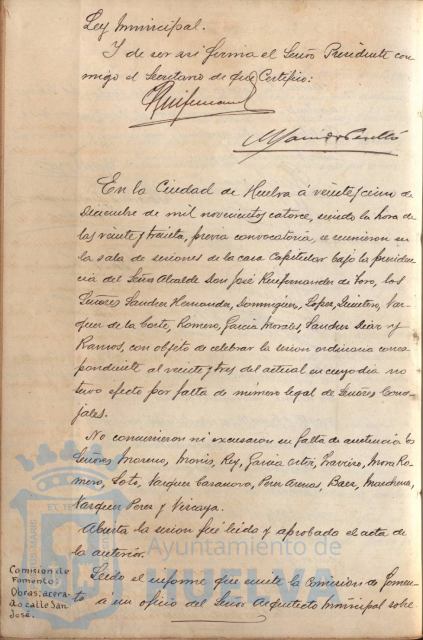 Ley Municipal.
Y de ser así firma el Señor Presidente con
migo el Secretario de que Certifico:
En la Ciudad de Huelva á veinte y cinco de
Diciembre de mil novecientos catorce, siendo la hora de
las veinte y treinta, previa convocatoria, se reunieron en
la sala de sesiones de la casa Capitular bajo la presiden
cia del Señor Alcalde Don José Ruifernandez de Toro, los
Señores Sanchez Hernandez, Dominguez, Lopez, Quintero, Vaz-
quez de la Corte, Romero, Garcia Morales, Sanchez Diaz y
Ramos, con objeto de celebrar la sesion ordinaria corres
pondiente al veinte y tres del actual en cuyo dia no
tuvo efecto por falta de número legal de Señores Conce-
jales.
No concurrieron ni excusaron su falta de asistencia los
Señores Moreno, Monis, Rey, Garcia Ortiz, Traviño, Mora Ro-
mero, Soto, Vazquez Casanova, Perez Arenas, Baez, Marchena,
Vazquez Perez y Vizcaya.
Abierta la sesion fué leida y aprobada el acta de
la anterior.
Comisión de
Fomento;
Obras; acera-
do calle San
José.
Leido el informe que emite la Comision de Fomen-
to á un oficio del Señor Arquitecto Municipal sobre
Ayuntamiento de
HUELVA